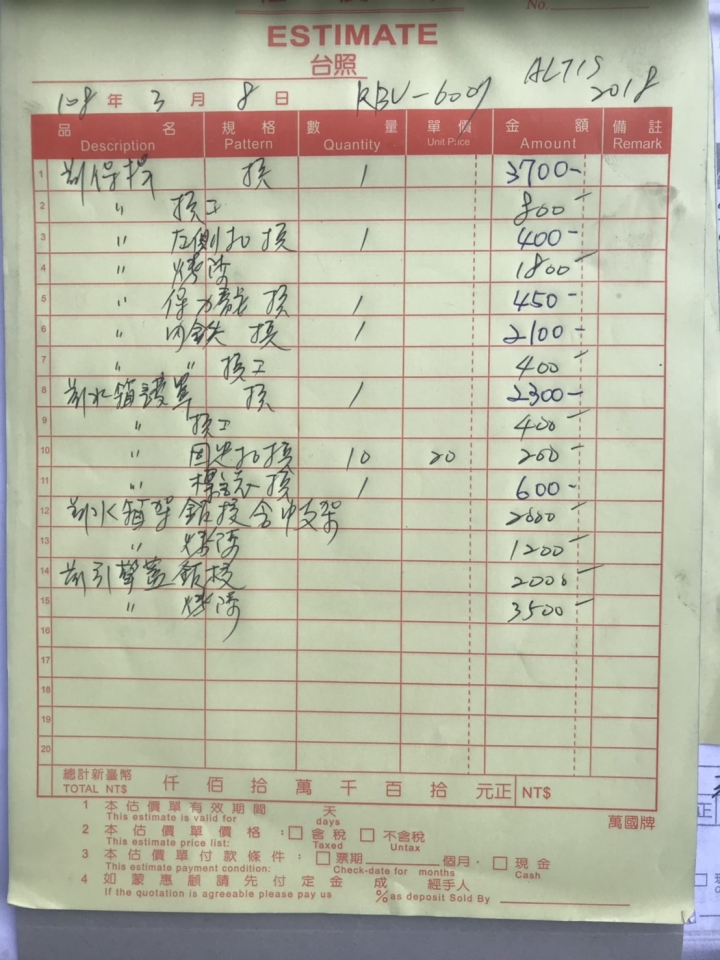 No.
ESTIMATE
台照
108 年 3 月 8 日 RBU-6009 ALTIS 2018
品名 規格 數量 單價 金額 備註
Description Pattern Quantity Unit Price Amount Remark
1 前保桿 換 1 3700-
2 〃 換工 800-
3 〃 左側扣 換 1 400-
4 〃 烤漆 1800-
5 〃 保力龍 換 1 450-
6 〃 內鉄 換 1 2100-
7 〃 〃 換工 400-
8 前水箱護罩 換 1 2300-
9 〃 換工 400-
10 〃 固定扣換 10 20 200-
11 〃 標誌 換 1 600-
12 前水箱架 鈑換含中支架 2000-
13 〃 烤漆 1200-
14 前引擎蓋 鈑校 2000-
15 〃 烤漆 3500-
16
17
18
19
20
總計新臺幣 仟 佰 拾 萬 千 百 拾 元正 NT$
TOTAL NT$
1 本估價單有效期間 天
This estimate is valid for days
萬國牌
2 本估價單價格:□含稅 □不含稅
This estimate price list: Taxed Untax
3 本估價單付款條件:□票期 個月.□現金
This estimate payment condition: Check-date for months Cash
4 如蒙惠顧請先付定金 成 經手人
If the quotation is agreeable please pay us % as deposit Sold By